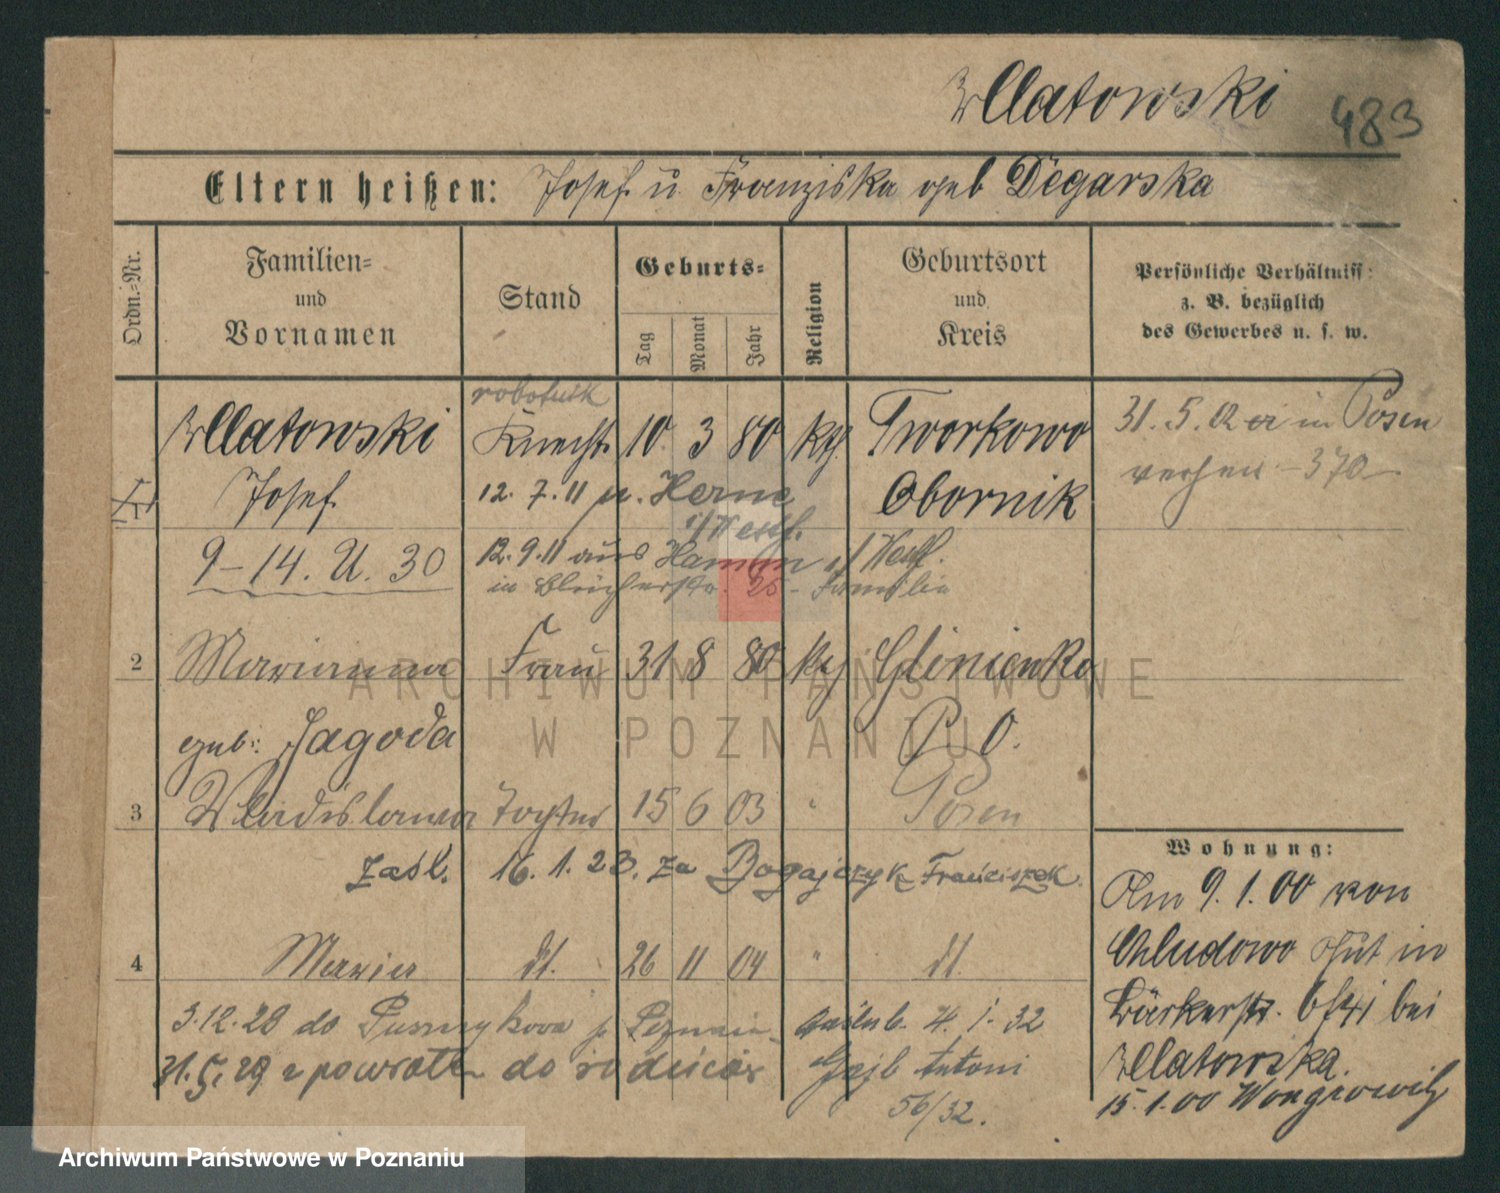 Wllatowski 483
Eltern heißen: Josef u Franziska geb Degarska
Ordn.-Nr.
Familien- und Vornamen
Stand
Geburts-
Tag
Monat
Jahr
Religion
Geburtsort und Kreis
Persönliche Verhältniss:
z. B. bezüglich
des Gewerbes u. s. w.
robotnik
Wllatowski Knecht 10. 3 80 kg Tworkowo
Josef 12. 7. 11 n. Herne Obornik
i/Westf.
31. 5. 02 er in Posen
370
9-14. U. 30 12. 9. 11 aus Hamm i/Westf.
in Bleicherstr. 25 - Familie
2 Marianna Frau 31 8 80 kg Glinienko
geb: Jagoda P. O.
3 Wladislawa Tochter 15 6 03 " Posen
zaśl. 16. 1. 23. za Bogajczyk Franciszek.
4 Maria dt. 26 11 04 " dt.
3.12.28 do
31. 5. 29 z powrotem do rodziców
zaślub. 4. 1. 32
Gajb Antoni
56/32.
Wohnung:
Am 9. 1. 00 von
Chludowo Gut in
bei
Wllatowska.
15. 1. 00 Wongrowitz
ARCHIWUM PAŃSTWOWE
W POZNANIU
Archiwum Państwowe w Poznaniu